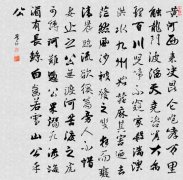 黄河西来决昆仑咆哮万里
触龙门波滔天尧咨嗟大禹
理百川儿啼不窥家杀湍湮
洪水九州始蚕麻其害乃去
茫然风沙被发之叟狂而痴
清晨临流欲奚为旁人不惜
妻止之公无渡河苦渡之
虎可搏河难凭公果溺死流海
湄有长鲸白齿若雪山公乎
公